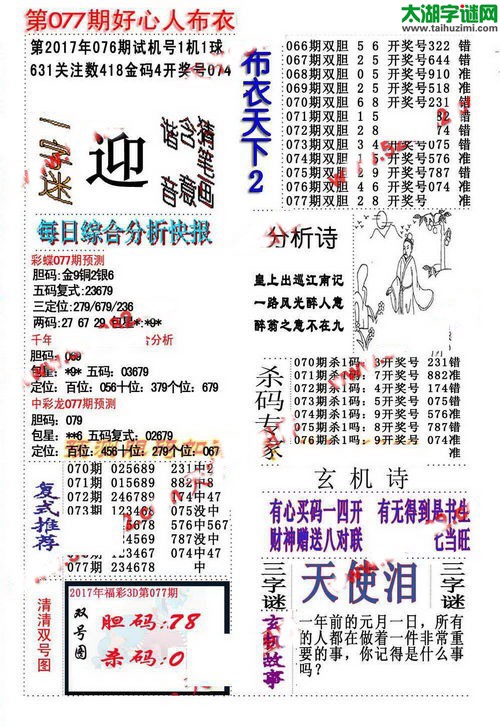 太湖字谜网
www.taihuzimi.com
第077期好心人布衣
第2017年076期试机号1机1球
631关注数418金码4开奖号074
一字迷
迎
猜 含 音
猪笔画
意
每日综合分析快报
彩蝶077期预测
胆码:金9铜2银6
五码复式:23679
三定位:279/679/236
两码:27 67 29 包星*:*9*
千年
分析
胆码:069
包星:*9* 五码:03679
定位:百位:056十位:379个位:679
中彩龙077期预测
胆码:079
包星:**6 五码复式:02679
定位:百位:456十位:279个位:067
复式推荐
070期 025689 231中2
071期 015689 882中8
072期 246789 74中47
073期 123468 075没中
5678 576中567
235678 787中78
123568 074没中
077期 123467
清清双号图
2017年福彩3D第077期
双号图
胆码:78
杀码:0
布衣天下2
066期双胆 5 6 开奖号322 错
067期双胆 2 5 开奖号644 错
068期双胆 4 5 开奖号910 准
070期双胆 6 8 开奖号231 错
071期双胆 1 5 82 错
072期双胆 2 8 74 错
073期双胆 3 4 开奖号075 错
074期双胆
075期双胆 2 9 开奖号787 错
076期双胆 4 6 开奖号074 准
077期双胆 2 8
分析诗
皇上出巡江南记
一路风光醉人意
醉翁之意不在九
杀码专家
070期杀1码:3开奖号 231错
071期杀1码:7开奖号 882准
072期杀1码:4开奖号 874错
073期杀1码:9开奖号 075准
074期杀1码:9开奖号 576准
075期杀1吗:8开奖号 787错
076期杀1吗:9开奖号 074准
玄机诗
有心买码一四开 有无得到是书生
财神赠送八对联 七当旺
三字谜
天使泪
三字谜
玄机故事
一年前的元月一日，所有
的人都在做着一件非常重
要的事，你记得是什么事
吗？